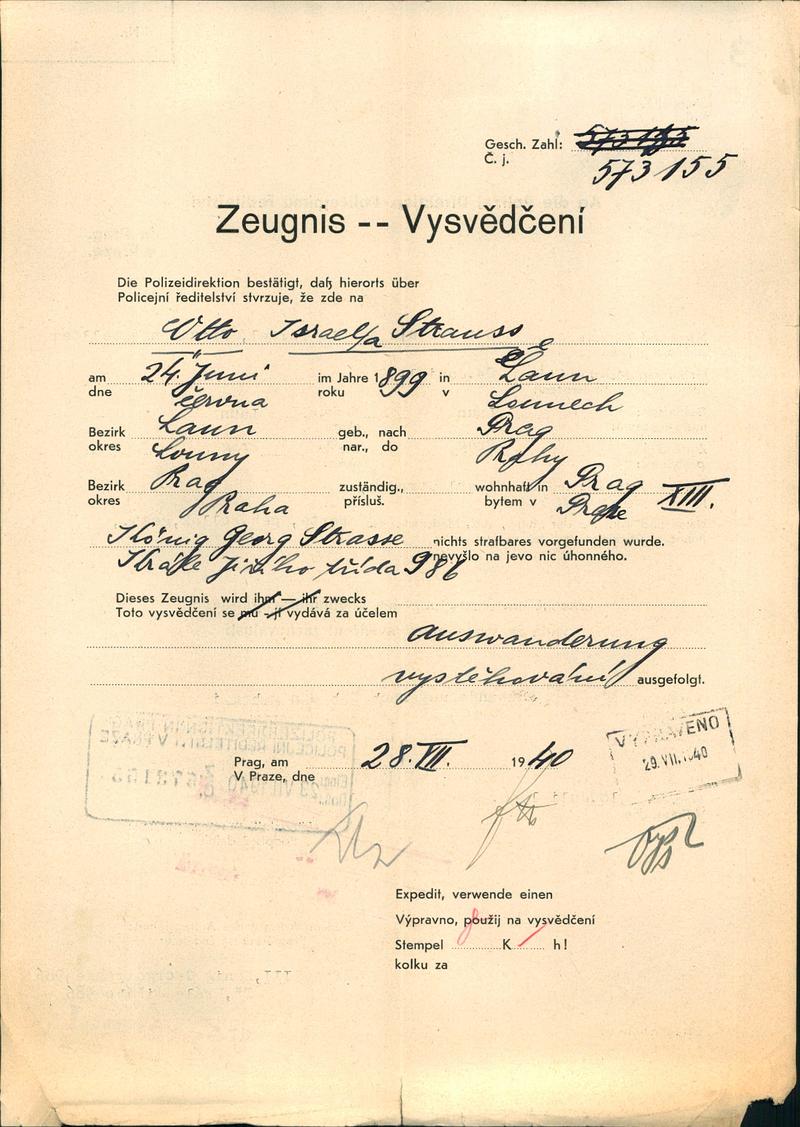 Gesch. Zahl:
Č. j. 573155
Zeugnis -- Vysvědčení
Die Polizeidirektion bestätigt, daß hierorts über
Policejní ředitelství stvrzuje, že zde na
Otto Israel/a Strauss/e
am 24. Juni im Jahre 1899 in Laun
dne června roku v Lounech
Bezirk Laun geb., nach Prag
okres Louny nar., do Prahy
Bezirk Prag zuständig., wohnhaft in Prag XIII.
okres Praha přísluš. bytem v Praze
König Georg Strasse nichts strafbares vorgefunden wurde.
Krále Jiřího třída 986 nevyšlo na jevo nic úhonného.
Dieses Zeugnis wird ihm — ihr zwecks
Toto vysvědčení se mu - jí vydává za účelem
Auswanderung
vystěhování ausgefolgt.
Prag, am
V Praze, dne 28. VII. 1940
VYPRAVENO
29. VII. 1940
Expedit, verwende einen
Výpravno, použij na vysvědčení
Stempel K h!
kolku za